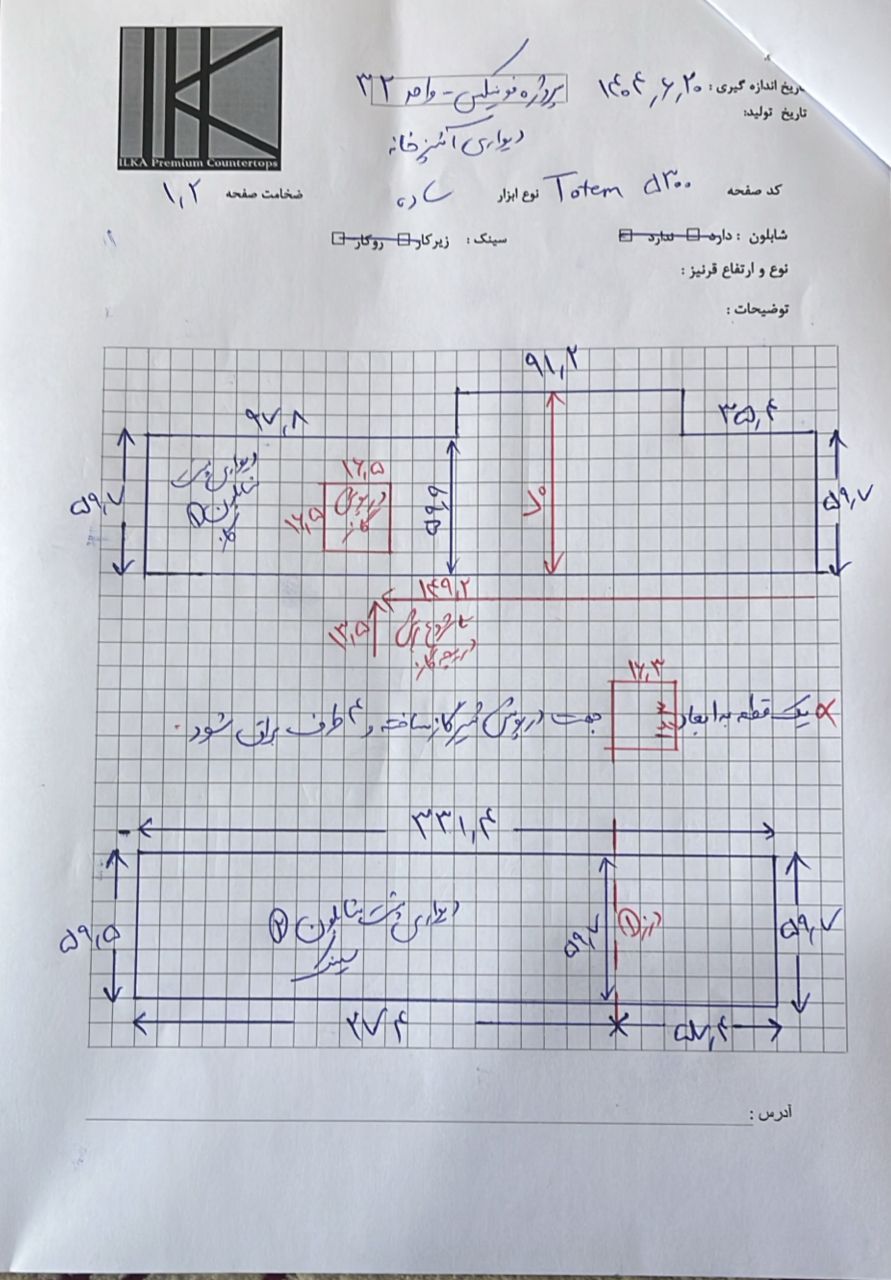 ILKA Premium Countertops
تاریخ اندازه گیری : ۱۴۰۴,۶,۲۰
پروژه فونیکس - واحد ۳۲
تاریخ تولید:
دیواری آشپزخانه
کد صفحه Totem ۵۳۰۰ نوع ابزار ساده ضخامت صفحه ۱,۲
شابلون : دارد ندارد سینک : زیرکار روکار
نوع و ارتفاع قرنیز :
توضیحات :
۹۱,۲
۹۷,۸ ۳۵,۴
دیواری پشت
شابلون ①
گاز
۵۹,۷ ۱۶,۵ ۱۶,۵ ۵۹,۹ ۷۰ ۵۹,۷
۱۴۹,۲
۱۳,۵
تا شروع
دریچه گاز
یک قطعه به ابعاد ۱۶,۳ جهت درپوش شیر گاز ساخته و ۴ طرف براق شود.
۳۳۱,۴
دیواری پشت شابلون ②
سینک
۵۹,۵ ۵۹,۷ درز ① ۵۹,۷
۲۷۴ ۵۷,۴
آدرس :